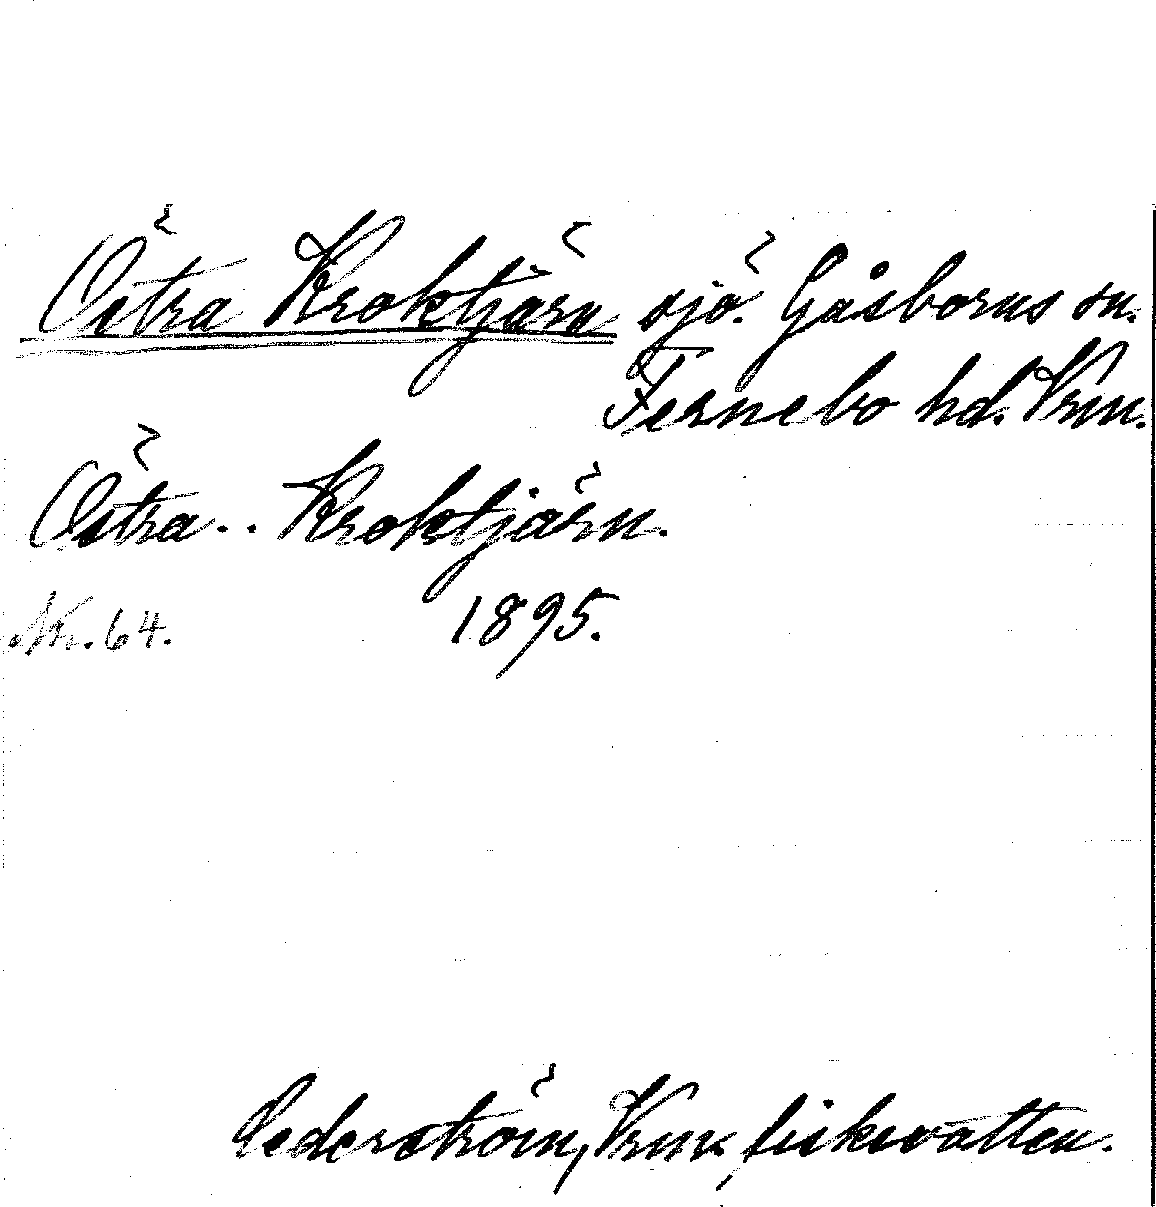 Östra Kroktjärn sjö. Gåsborns sn.
Fernebo hd. Vrm.
Östra.. Kroktjärn.
Nr. 64. 1895.
Cederström, Vrm, fiskevatten.